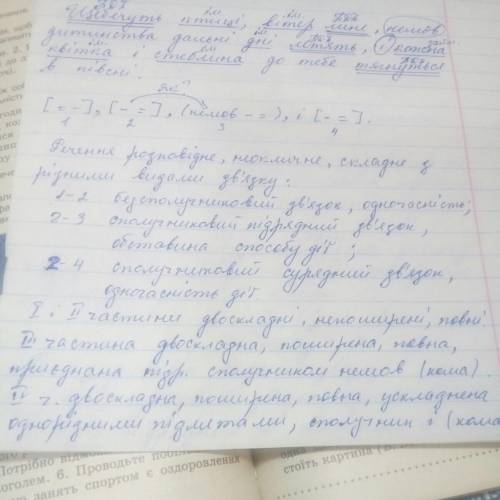 Щебечуть птиці, вітер лине, немов
дитинства дальні дні летять, і кожна
квітка і стеблина до тебе тягнуться
в півсні.
як?
[= -], [- =], (немов - =), і [- =].
1 2 3 4
Речення розповідне, неокличне, складне з
різними видами зв'язку:
1-2 безсполучниковий зв'язок, одночасність;
2-3 сполучниковий підрядний зв'язок,
обставина способу дії;
2-4 сполучниковий сурядний зв'язок,
одночасність дії
I і II частини двоскладні, непоширені, повні
III частина двоскладна, поширена, повна,
приєднана підр. сполучником немов (кома).
ч. двоскладна, поширена, повна, ускладнена
однорідними підметами, сполучник і (кома
Потрібно відмо
оголем. 6. Проводьте
занять спортом є оздоровлення
одна
стоїть картина